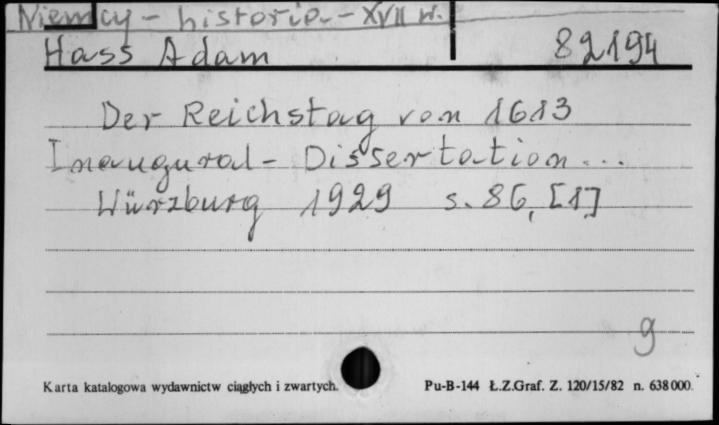 Niemcy - historia - XVII w.
Hass Adam 82194
Der Reichstag von 1613
Inaugural - Dissertation...
Würzburg 1929 s. 86, [1]
g
Karta katalogowa wydawnictw ciągłych i zwartych. Pu-B-144 Ł.Z.Graf. Z. 120/15/82 n. 638000.